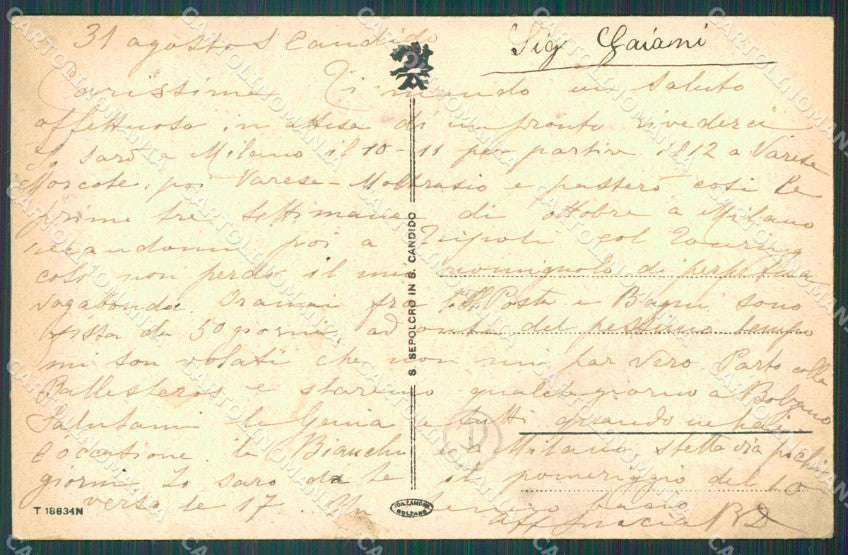 31 agosto S Candido
Sig Gaiani
Carissima Ti mando un saluto
affettuoso in attesa di un pronto rivederci
Io sarò a Milano il 10-11 per partire il 12 a Varese
Morcote, poi Varese-Moltrasio e passerò così le
prime tre settimane di ottobre a Milano
recandomi poi a Tripoli col Touring
così non perdo il mio nomignolo di perpetua
vagabonda. Oramai fra Posta e Bagni sono
50 giorni ad onta del pessimo tempo
mi son volati che non mi par vero Parto colla
Ballestero e staremo qualche giorno a Bolzano
Salutami la Genia e tutti quando ne hai
occasione. la Bianchi è a Milano pochi
giorni Io sarò da te il pomeriggio del 10
verso le 17. Un bacio
aff
S. SEPOLCRO IN S. CANDIDO
T 18634N
BOLZANO
CARTOLINOMANIA